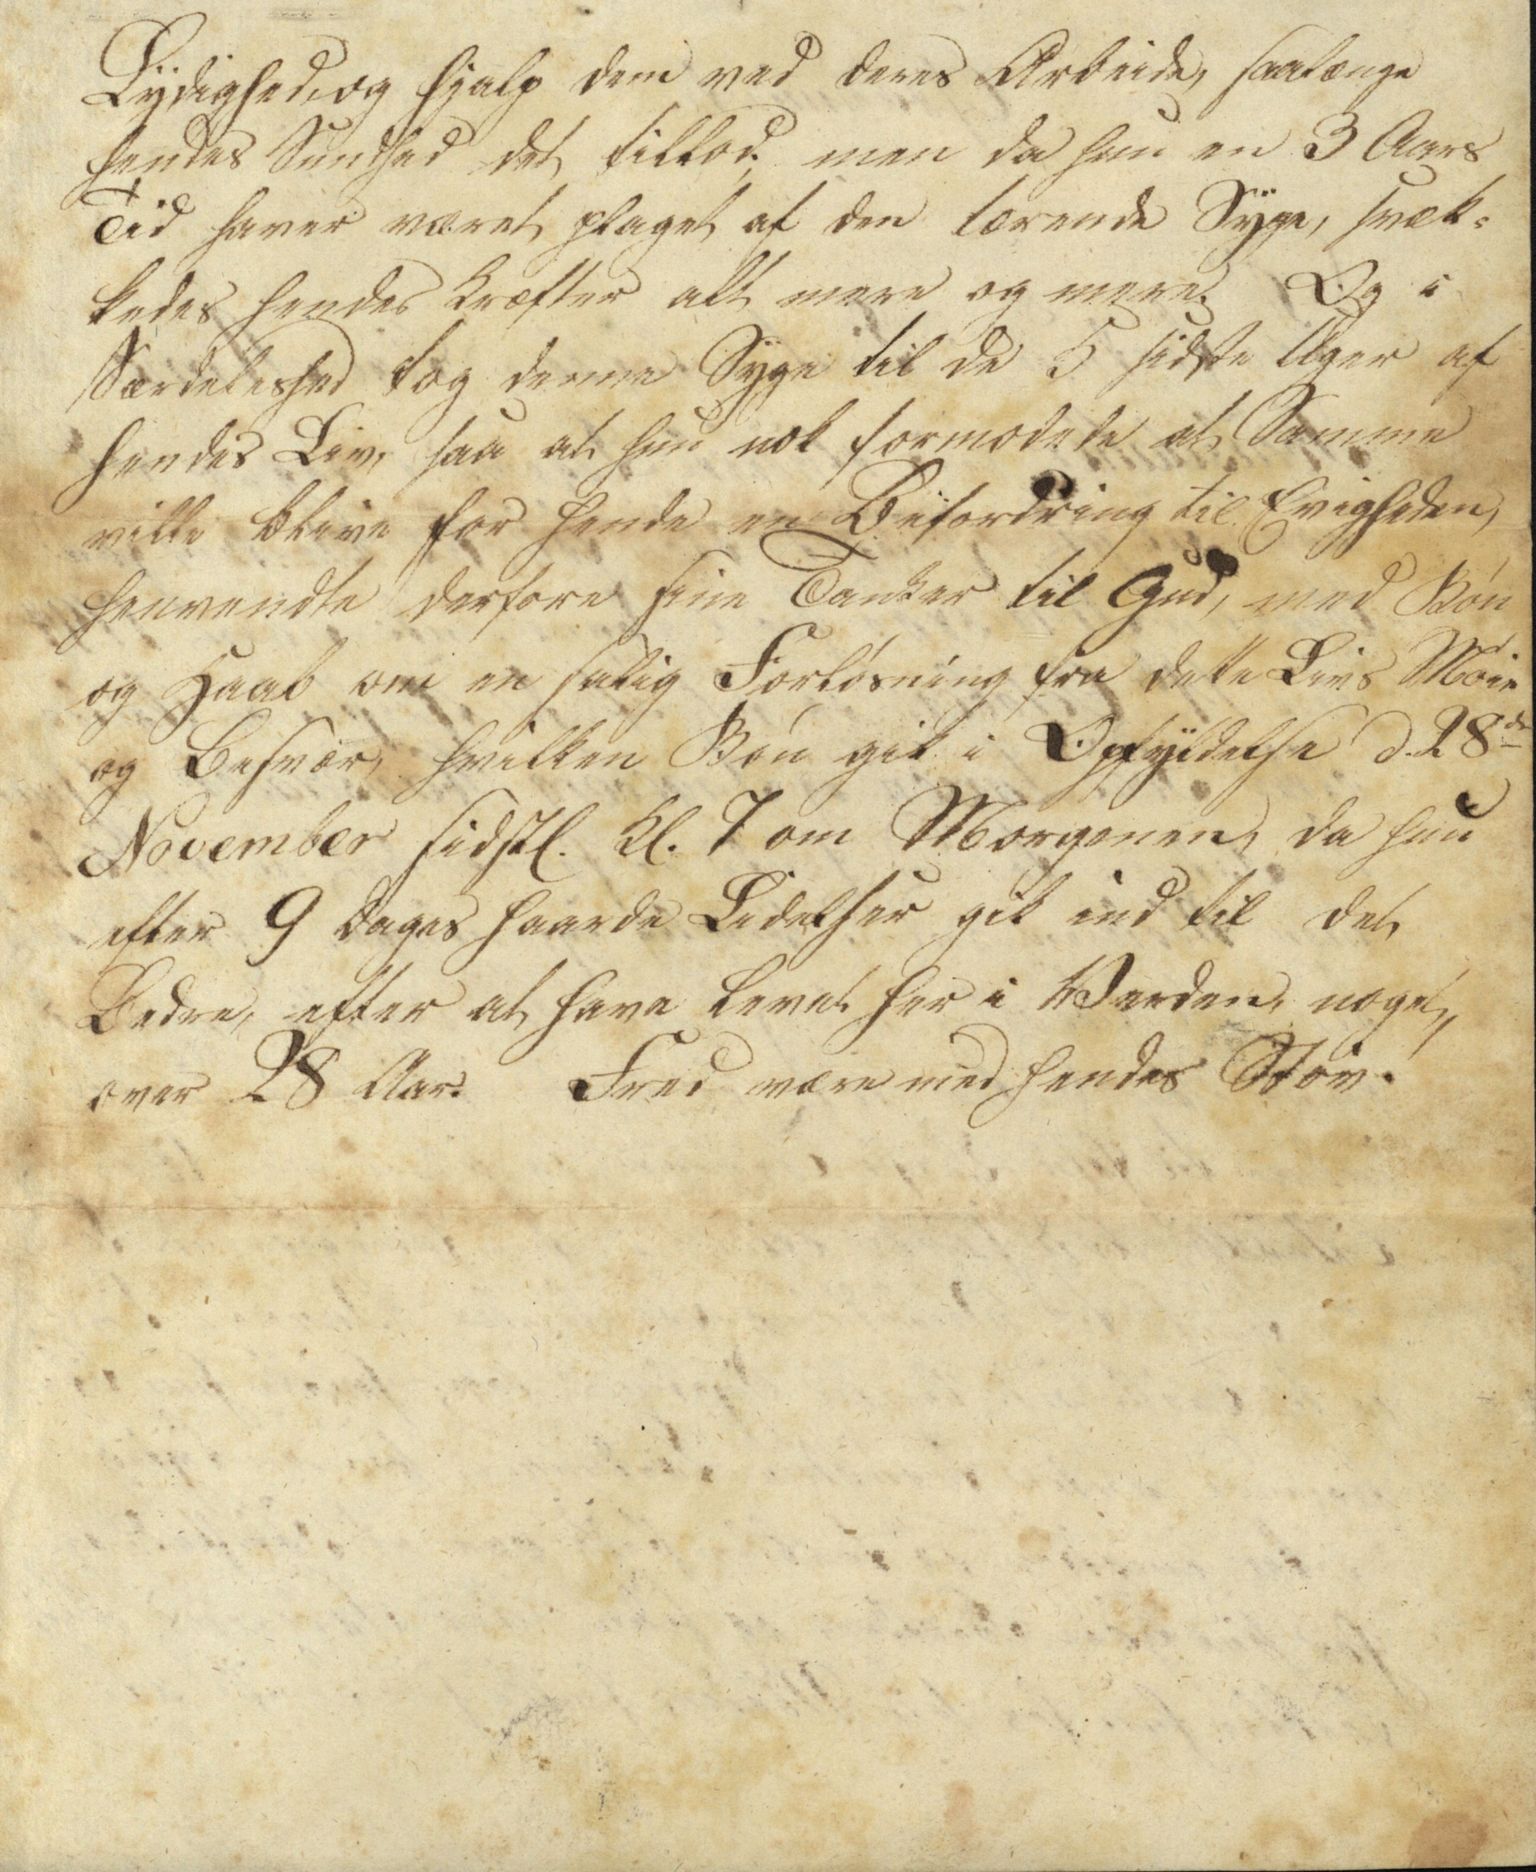 Lydighed, og hjalp dem ved deres Arbeide, saalænge
hendes Sundhed det tillod; men da hun en 3 Aars
Tid haver været plaget af den tærende Syge, svæk-
kedes hendes Kræfter alt mere og mere. Og i
Særdeleshed tog denne Syge til de 5 sidste Uger af
hendes Liv, saa at hun nok formodede at Samme
ville blive for hende en Befordring til Evigheden,
henvendte derfore sine Tanker til Gud, med Bøn
og Haab om en salig Forløsning fra dette Livs Møie
og Besvær, hvilken Bøn gik i Opfyldelse d. 28de
November sidstl. Kl. 7 om Morgenen, da hun
efter 9 Dages haarde Lidelser gik ind til det
Bedre, efter at have levet her i Verden, noget
over 28 Aar. Fred være med hendes Støv.